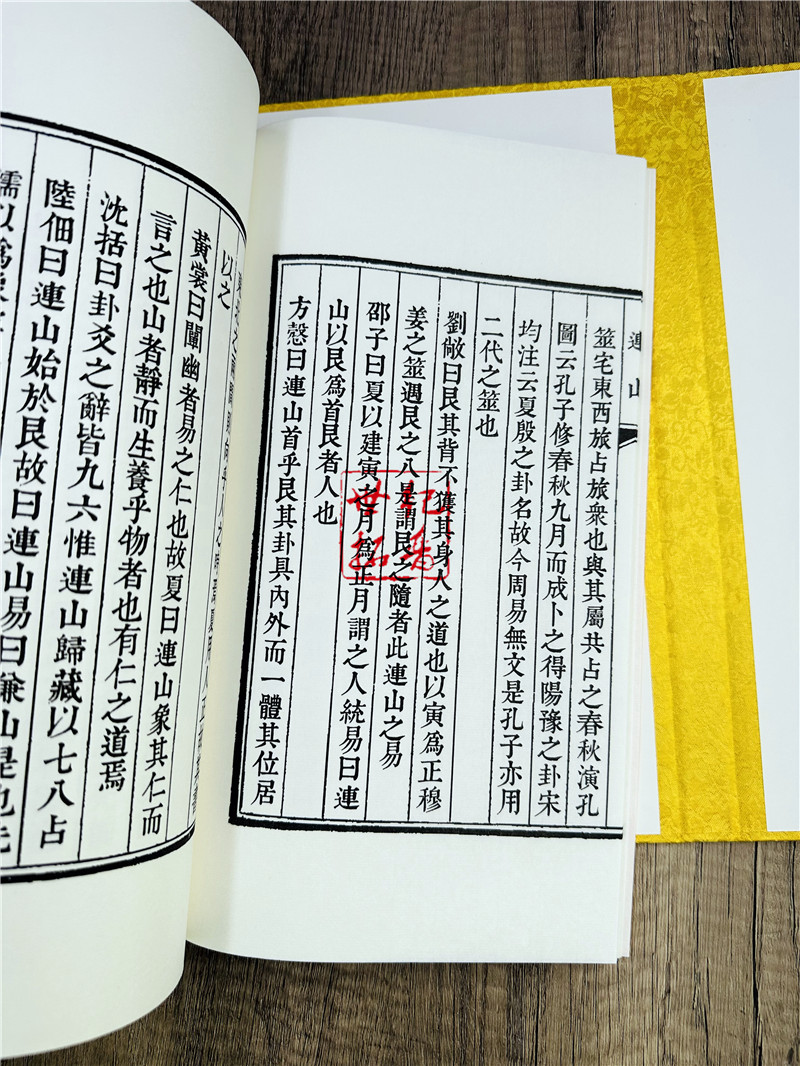 連山
筮宅東西旅占旅衆也與其屬共占之春秋演孔
圖云孔子修春秋九月而成卜之得陽豫之卦宋
均注云夏殷之卦名故今周易無文是孔子亦用
二代之筮也
劉敞曰艮其背不獲其身人之道也以寅爲正穆
姜之筮遇艮之八是謂艮之隨者此連山之易
邵子曰夏以建寅之月爲正月謂之人統易曰連
山以艮爲首艮者人也
方慤曰連山首乎艮其卦具內外而一體其位居
以之
黃裳曰闡幽者易之仁也故夏曰連山象其仁而
言之也山者靜而生養乎物者也有仁之道焉
沈括曰卦爻之辭皆九六惟連山歸藏以七八占
陸佃曰連山始於艮故曰連山易曰兼山是也先
儒以爲
世紀
拓香